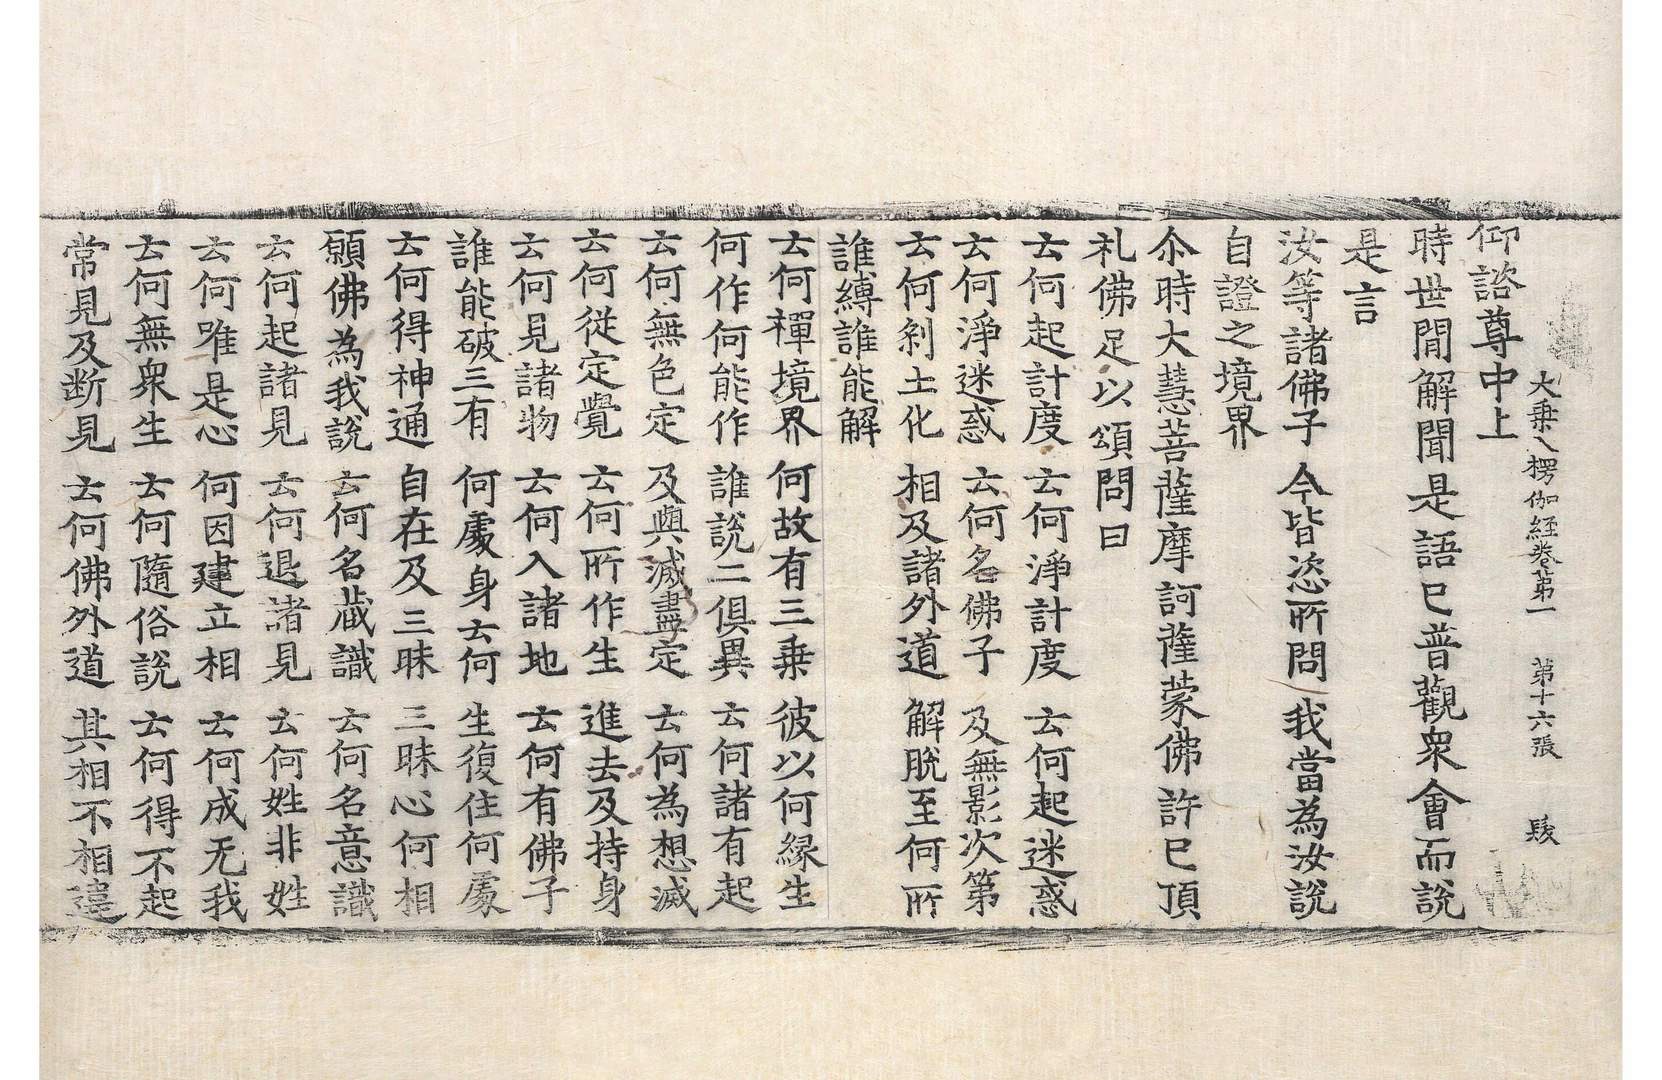 大乗入楞伽経卷第一 第十六張 髮
仰諮尊中上
時世間解聞是語已普觀衆會而說
是言
汝等諸佛子 今皆恣所問 我當為汝說
自證之境界
尒時大慧菩薩摩訶薩蒙佛許已頂
礼佛足以頌問曰
云何起計度 云何淨計度 云何起迷惑
云何淨迷惑 云何名佛子 及無影次第
云何剎土化 相及諸外道 解脫至何所
誰縛誰能解
云何禪境界 何故有三乗 彼以何緣生
何作何能作 誰說二俱異 云何諸有起
云何無色定 及與滅盡定 云何為想滅
云何從定覺 云何所作生 進去及持身
云何見諸物 云何入諸地 云何有佛子
誰能破三有 何處身云何 生復住何處
云何得神通 自在及三昧 三昧心何相
願佛為我說 云何名藏識 云何名意識
云何起諸見 云何退諸見 云何姓非姓
云何唯是心 何因建立相 云何成无我
云何無衆生 云何隨俗說 云何得不起
常見及断見 云何佛外道 其相不相違